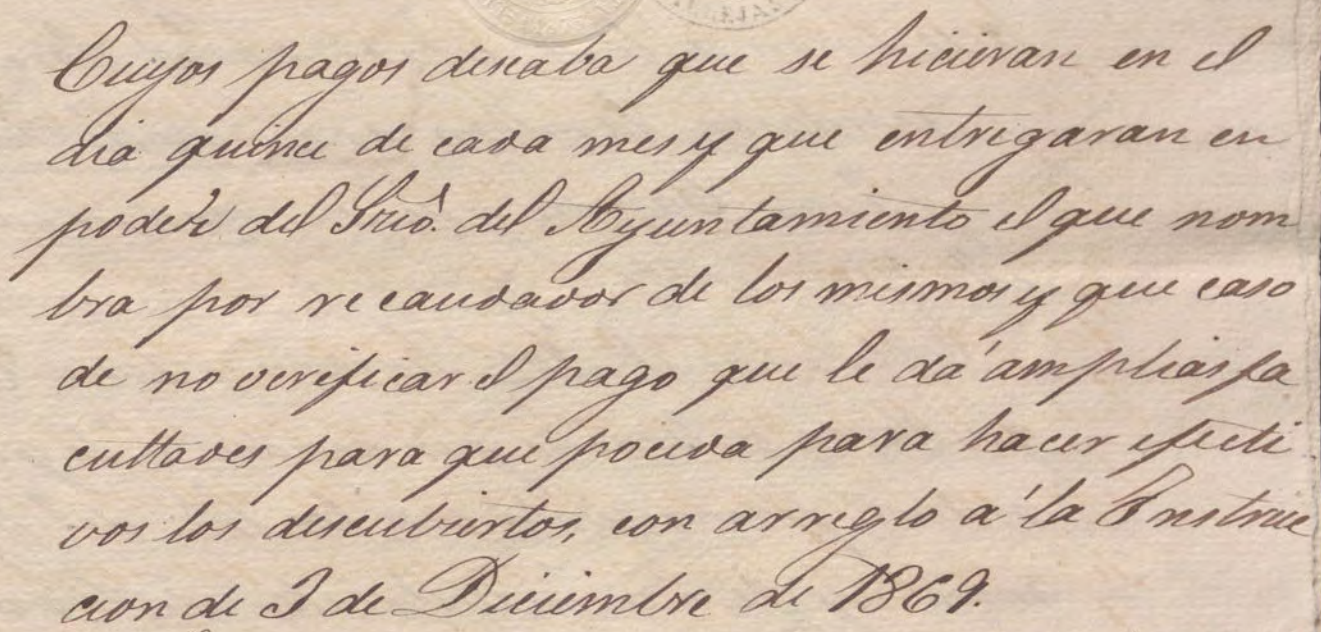 Cuyos pagos deseaba que se hicieran en el
dia quince de cada mes y que entregaran en
poder del Srio. del Ayuntamiento el que nom
bra por recaudador de los mismos y que caso
de no verificar el pago que le dá amplias fa
cultades para que poceda para hacer efecti
vos los descubiertos, con arreglo á la Instruc
cion de 3 de Diciembre de 1869.